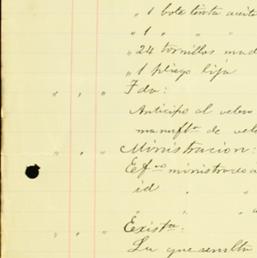 „ 1 bote tinta aceite
„ 1 „ „ „
„ 24 tornillos mad
„ 1 pliego lija
„ „ „ Fdo:
Anticipo al velero
manuf
„ „ „ Ministracion:
ministrado a
id „
„ „
„ „ „ Exista:
La que resulta